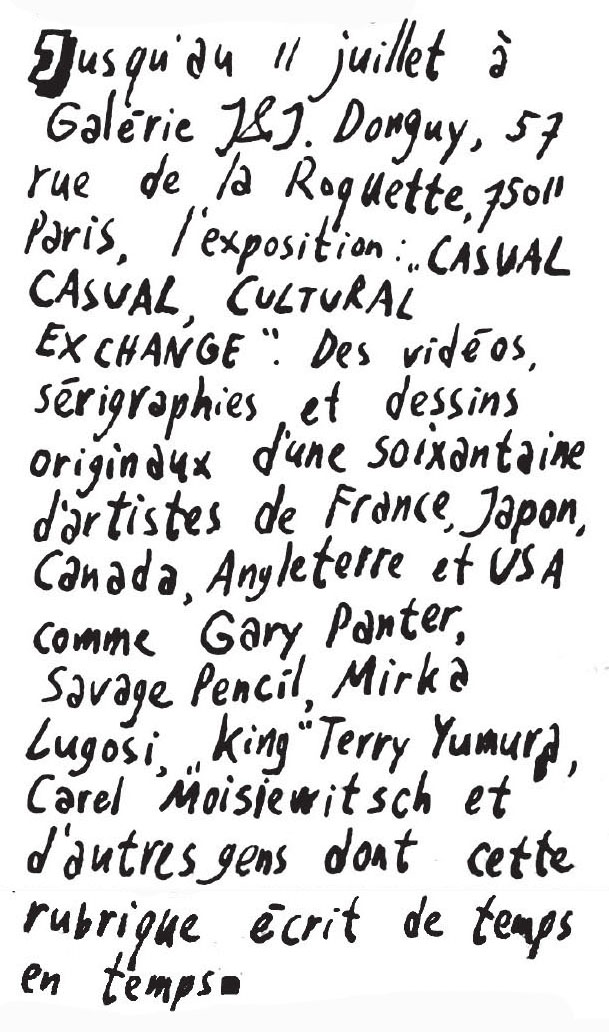 Jusqu'au 11 juillet à
Galérie J&J. Donguy, 57
rue de la Roquette, 75011
Paris, l'exposition: „CASUAL
CASUAL, CULTURAL
EXCHANGE“. Des vidéos,
sérigraphies et dessins
originaux d'une soixantaine
d'artistes de France, Japon,
Canada, Angleterre et USA
comme Gary Panter,
Savage Pencil, Mirka
Lugosi, „King“ Terry Yumura,
Carel Moisiewitsch et
d'autres gens dont cette
rubrique écrit de temps
en temps.